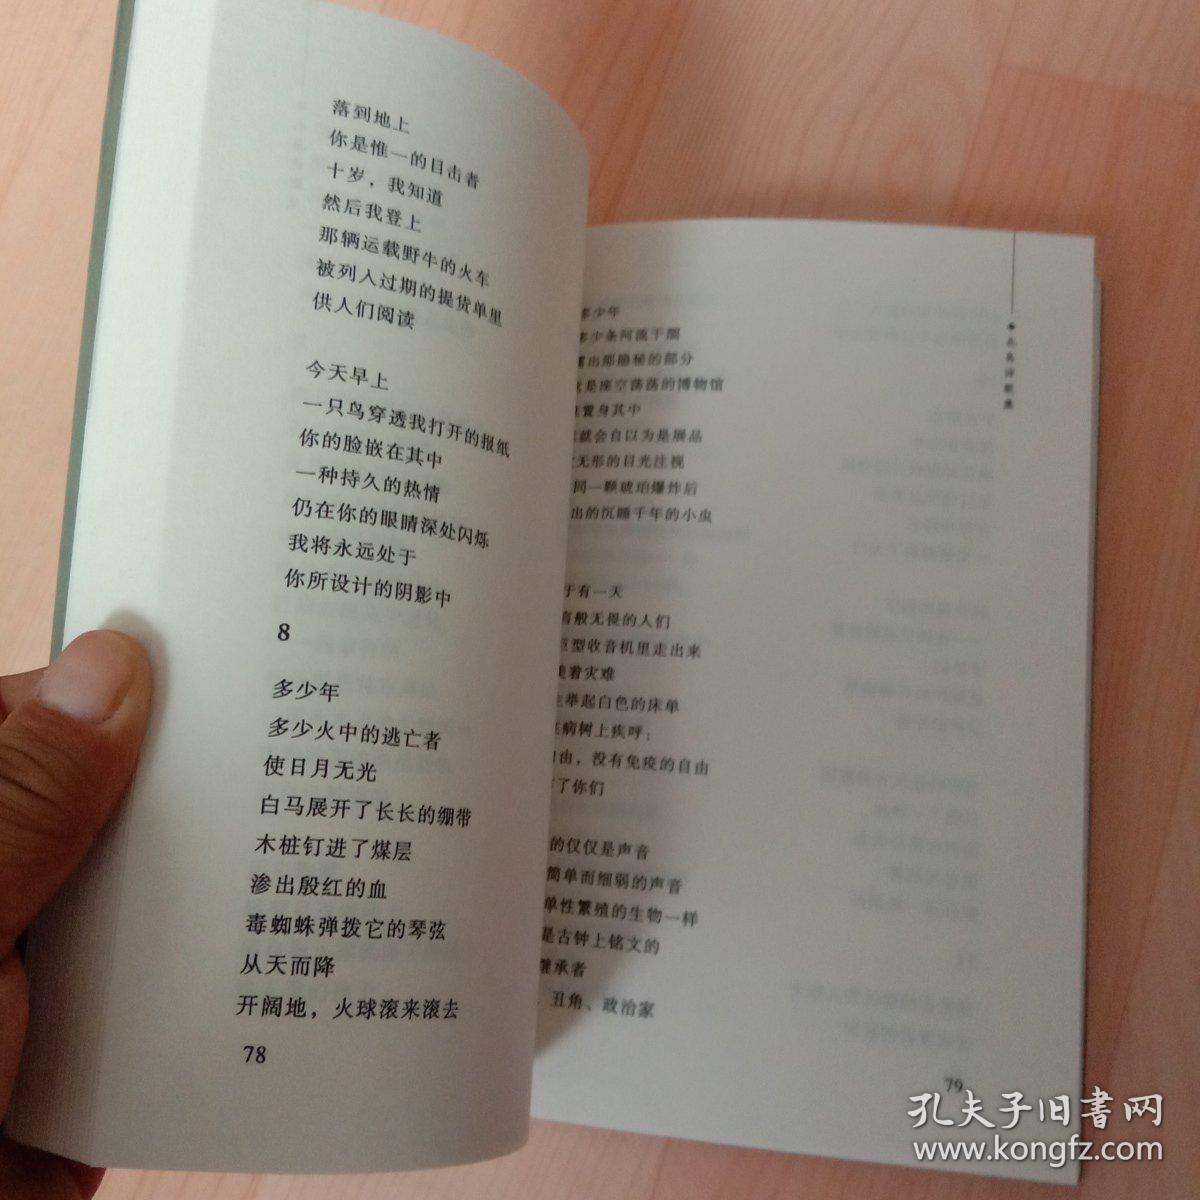 落到地上
你是惟一的目击者
十岁，我知道
然后我登上
那辆运载野牛的火车
被列入过期的提货单里
供人们阅读
今天早上
一只鸟穿透我打开的报纸
你的脸嵌在其中
一种持久的热情
仍在你的眼睛深处闪烁
我将永远处于
你所设计的阴影中
8
多少年
多少火中的逃亡者
使日月无光
白马展开了长长的绷带
木桩钉进了煤层
渗出殷红的血
毒蜘蛛弹拨它的琴弦
从天而降
开阔地，火球滚来滚去
78
北岛诗歌集
多少年
多少条河流干涸
露出那隐秘的部分
这是座空荡荡的博物馆
谁置身其中
就会自以为是展品
无形的目光注视
同一颗琥珀爆炸后
出的沉睡千年的小虫
于有一天
言般无畏的人们
巨型收音机里走出来
美着灾难
举起白色的床单
病树上疾呼：
由，没有免疫的自由
了你们
的仅仅是声音
简单而细弱的声音
单性繁殖的生物一样
是古钟上铭文的
继承者
、丑角、政治家
79
孔夫子旧書网
www.kongfz.com